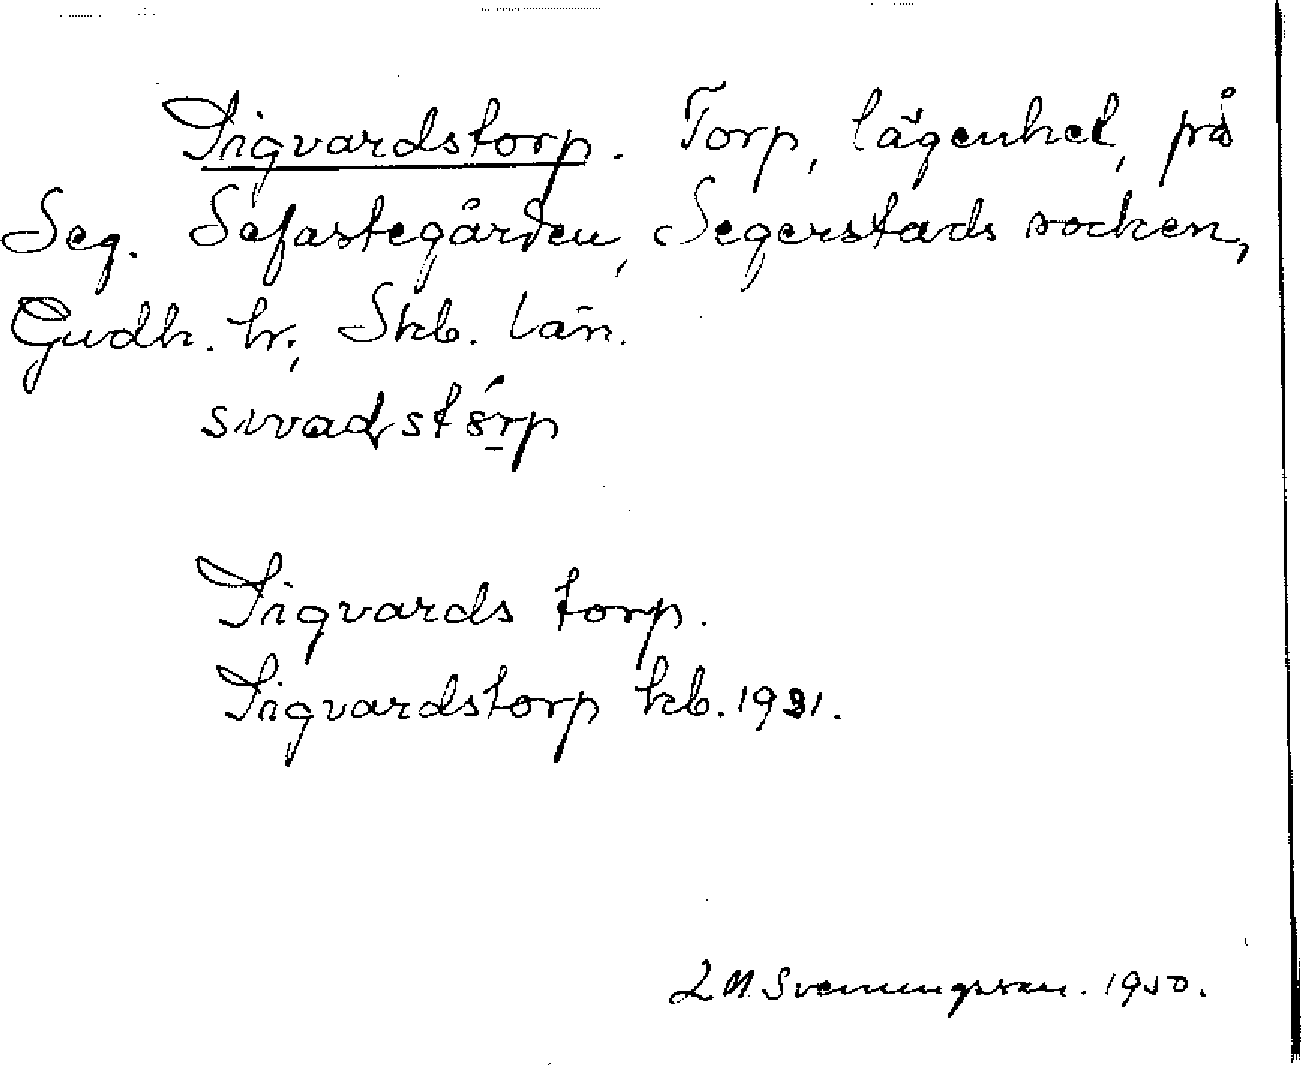 Sigvardstorp. Torp, lägenhet, på
Seg. Sefastegården, Segerstads socken,
Gudh. hr, Skb. län.
sıvadstórp
Sigvards torp.
Sigvardstorp kb. 1931.
L M Svenungsson. 1950.